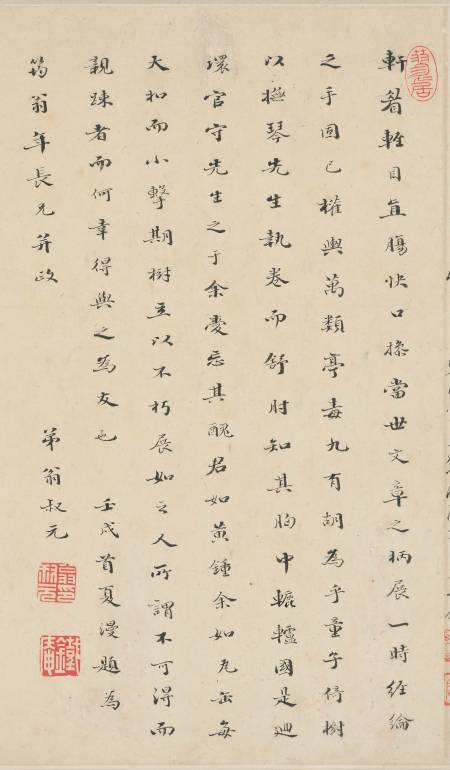 軒眉輊目直腸快口操當世文章之柄展一時經綸
之手固已權輿萬類亭毒九有胡為乎童子倚樹
以撫琴先生執卷而舒肘知其胸中轆轤國是迴
環官守先生之于余愛忘其醜君如黃鍾余如瓦缶每
大扣而小擊期樹立以不朽展如之人所謂不可得而
親踈者而何幸得與之為友也 壬戌首夏漫題為
筠翁年長兄并政
弟翁叔元
鐵庵